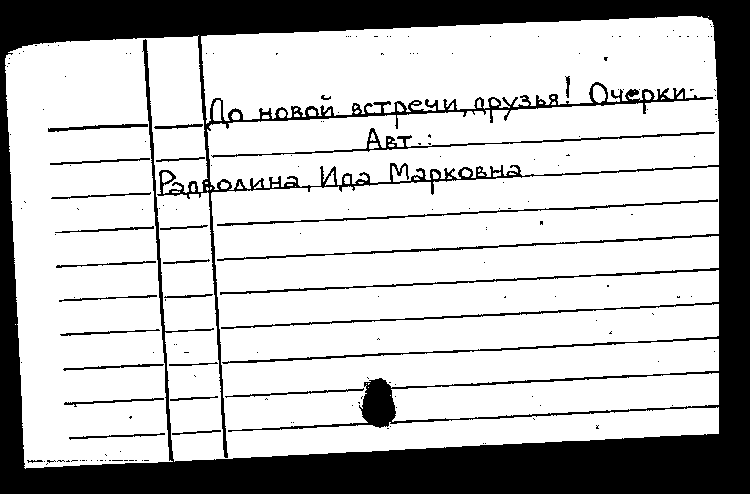 До новой встречи, друзья! Очерки.
Авт.:
Радволина, Ида Марковна